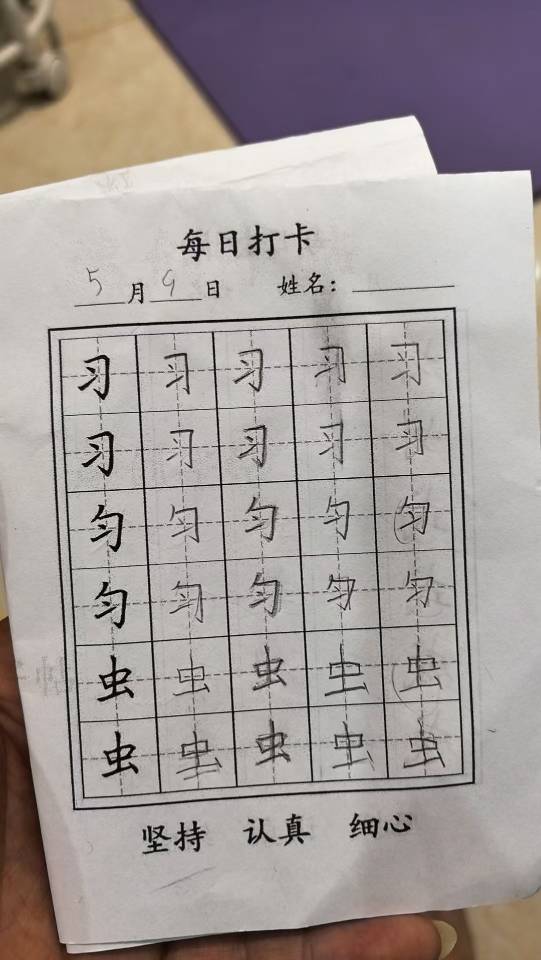 每日打卡
5月9日 姓名：
习习习习习
习习习习习
匀匀匀匀匀
匀匀匀匀匀
虫虫虫虫虫
虫虫虫虫虫
坚持 认真 细心